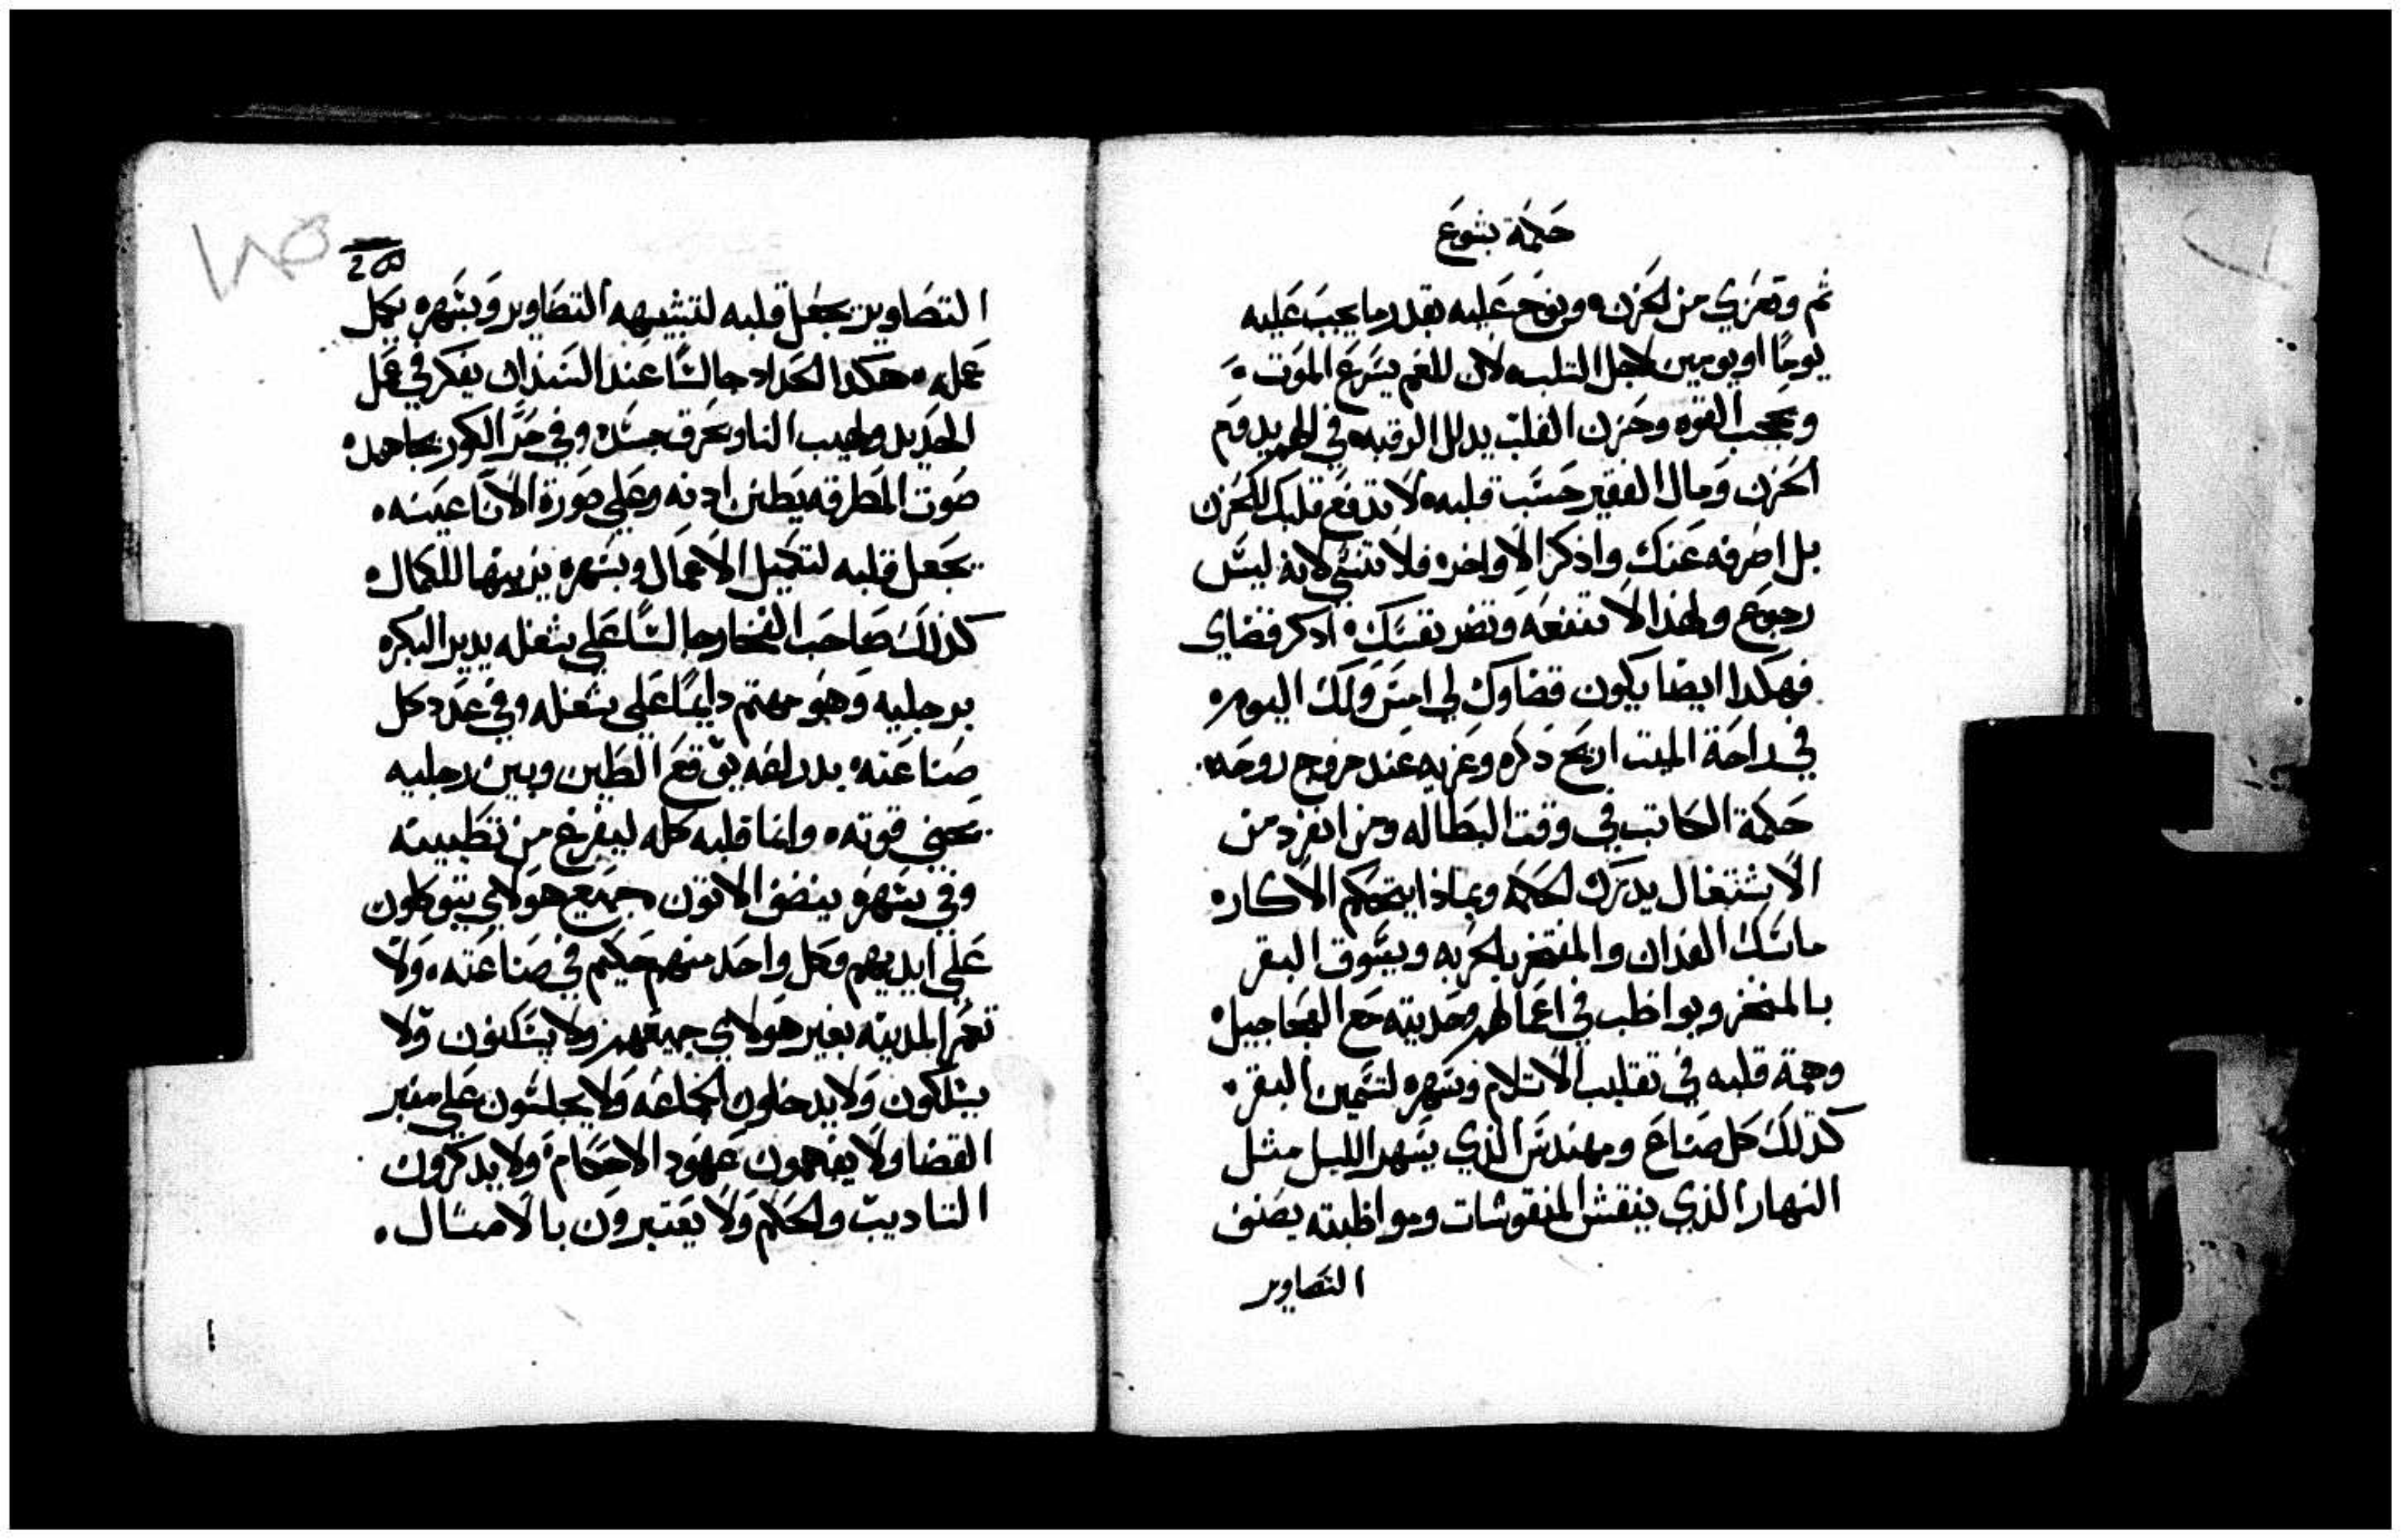 حكمة يشوع
ثم وتعزي من الحزن ونوح عليه بقدر ما يجب عليه
يومًا او يومين لاجل الثلبه لان للغم يسرع الموت
ويحجب القوه وحزن القلب يدلل الرقبه في الهم يدوم
الحزن ومال الفقير حسب قلبه لا تدفع قلبك للحزن
بل اصرفه عنك واذكر الاواخر فلا تنسى لانه ليس
رجوع ولهذا لا تنفعه وتضر نفسك اذكر قضاي
فهكدا ايضا يكون قضاوك لي امس ولك اليوم
في راحة الميت ارح ذكره وعزيه عند خروج روحه
حكمة الكاتب في وقت البطاله ومن انفرد من
الاشتغال يدرك الحكمه وبماذا يتحكم الاكار
ماسك الفدان والمفتخر بالحربه ويسوق البقر
بالمنخز ويواظب في اعمالهم وحديثه مع العجاجيل
وهمة قلبه في تقليب الاتلام وسهره لتسمين البقر
كذلك كل صناع ومهندس الذي يسهر الليل مثل
النهار الذي ينقش المنقوشات ومواظبته يصنف
التصاوير
التصاوير يجعل قلبه لتشبيهه التصاوير وبسهره يكمل
عمله هكدا الحداد جالسًا عند السندان يفكر في عمل
الحديد ولهيب النار يحرق جسده وفي حر الكور يجاهد
صوت المطرقه يطن ادنه وعلي صورة الانا عينه
يجعل قلبه لتكميل الاعمال وبسهره يزينها للكمال
كذلك صاحب الفخار جالسًا علي شغله يدير البكره
برجليه وهو مهتم دايمًا علي شغله وفي عدد كل
صناعته بدراعه يوقع الطين وبين رجليه
يحني قوته وانما قلبه كله ليفرغ من تطيينه
وفي سهره ينضف الاتون جميع هولاي يتوكلون
علي ايديهم وكل واحد منهم حكيم في صناعته ولا
تعمر المدينه بغير هولاي جميعهم ولا يسكنون ولا
يسلكون ولا يدخلون الجماعه ولا يجلسون علي منبر
القضا ولا يفهمون عهود الاحكام ولا يدكرون
التاديب والحكم ولا يعتبرون بالامثال